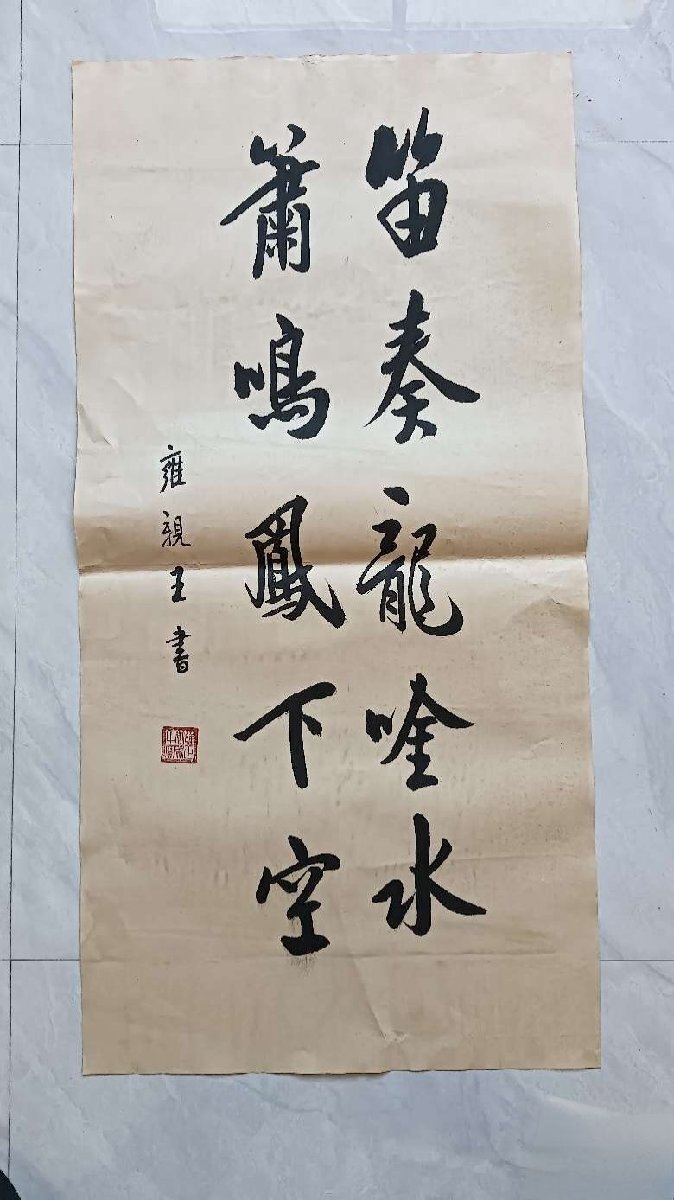 笛奏龍唫水
簫鳴鳳下空
雍親王書